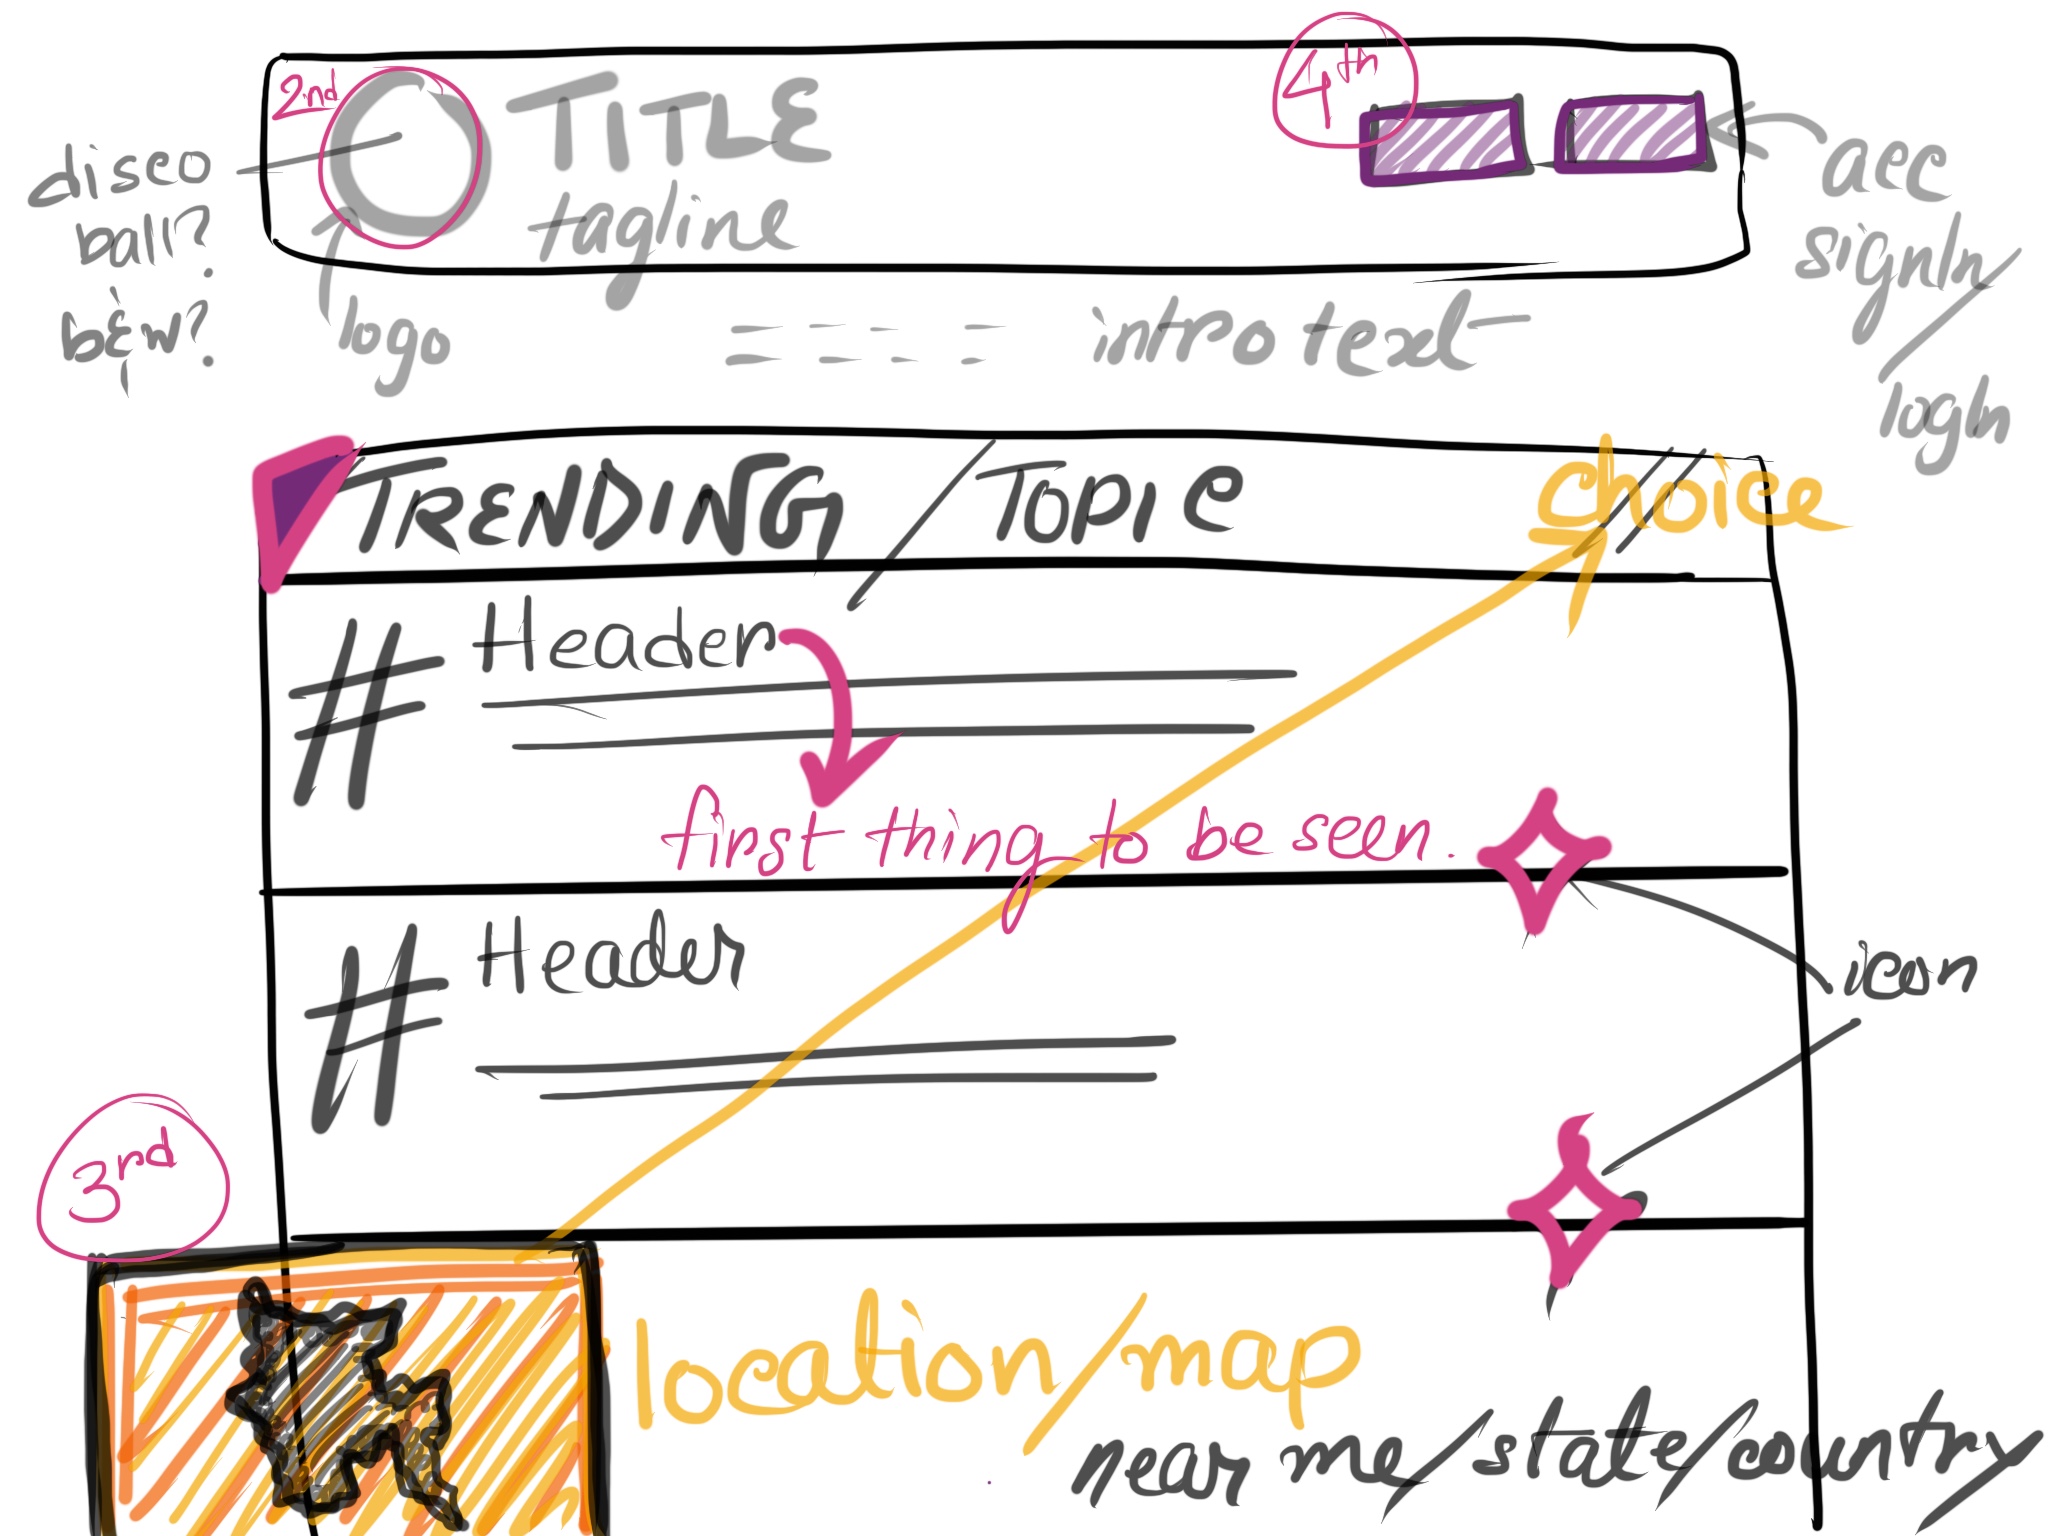 2nd
TITLE
tagline
4th
disco
ball?
b&w?
logo
intro text
acc
signIn/
logIn
TRENDING/TOPIC
choice
# Header
first thing to be seen.
# Header
icon
3rd
location/map
near me/state/country